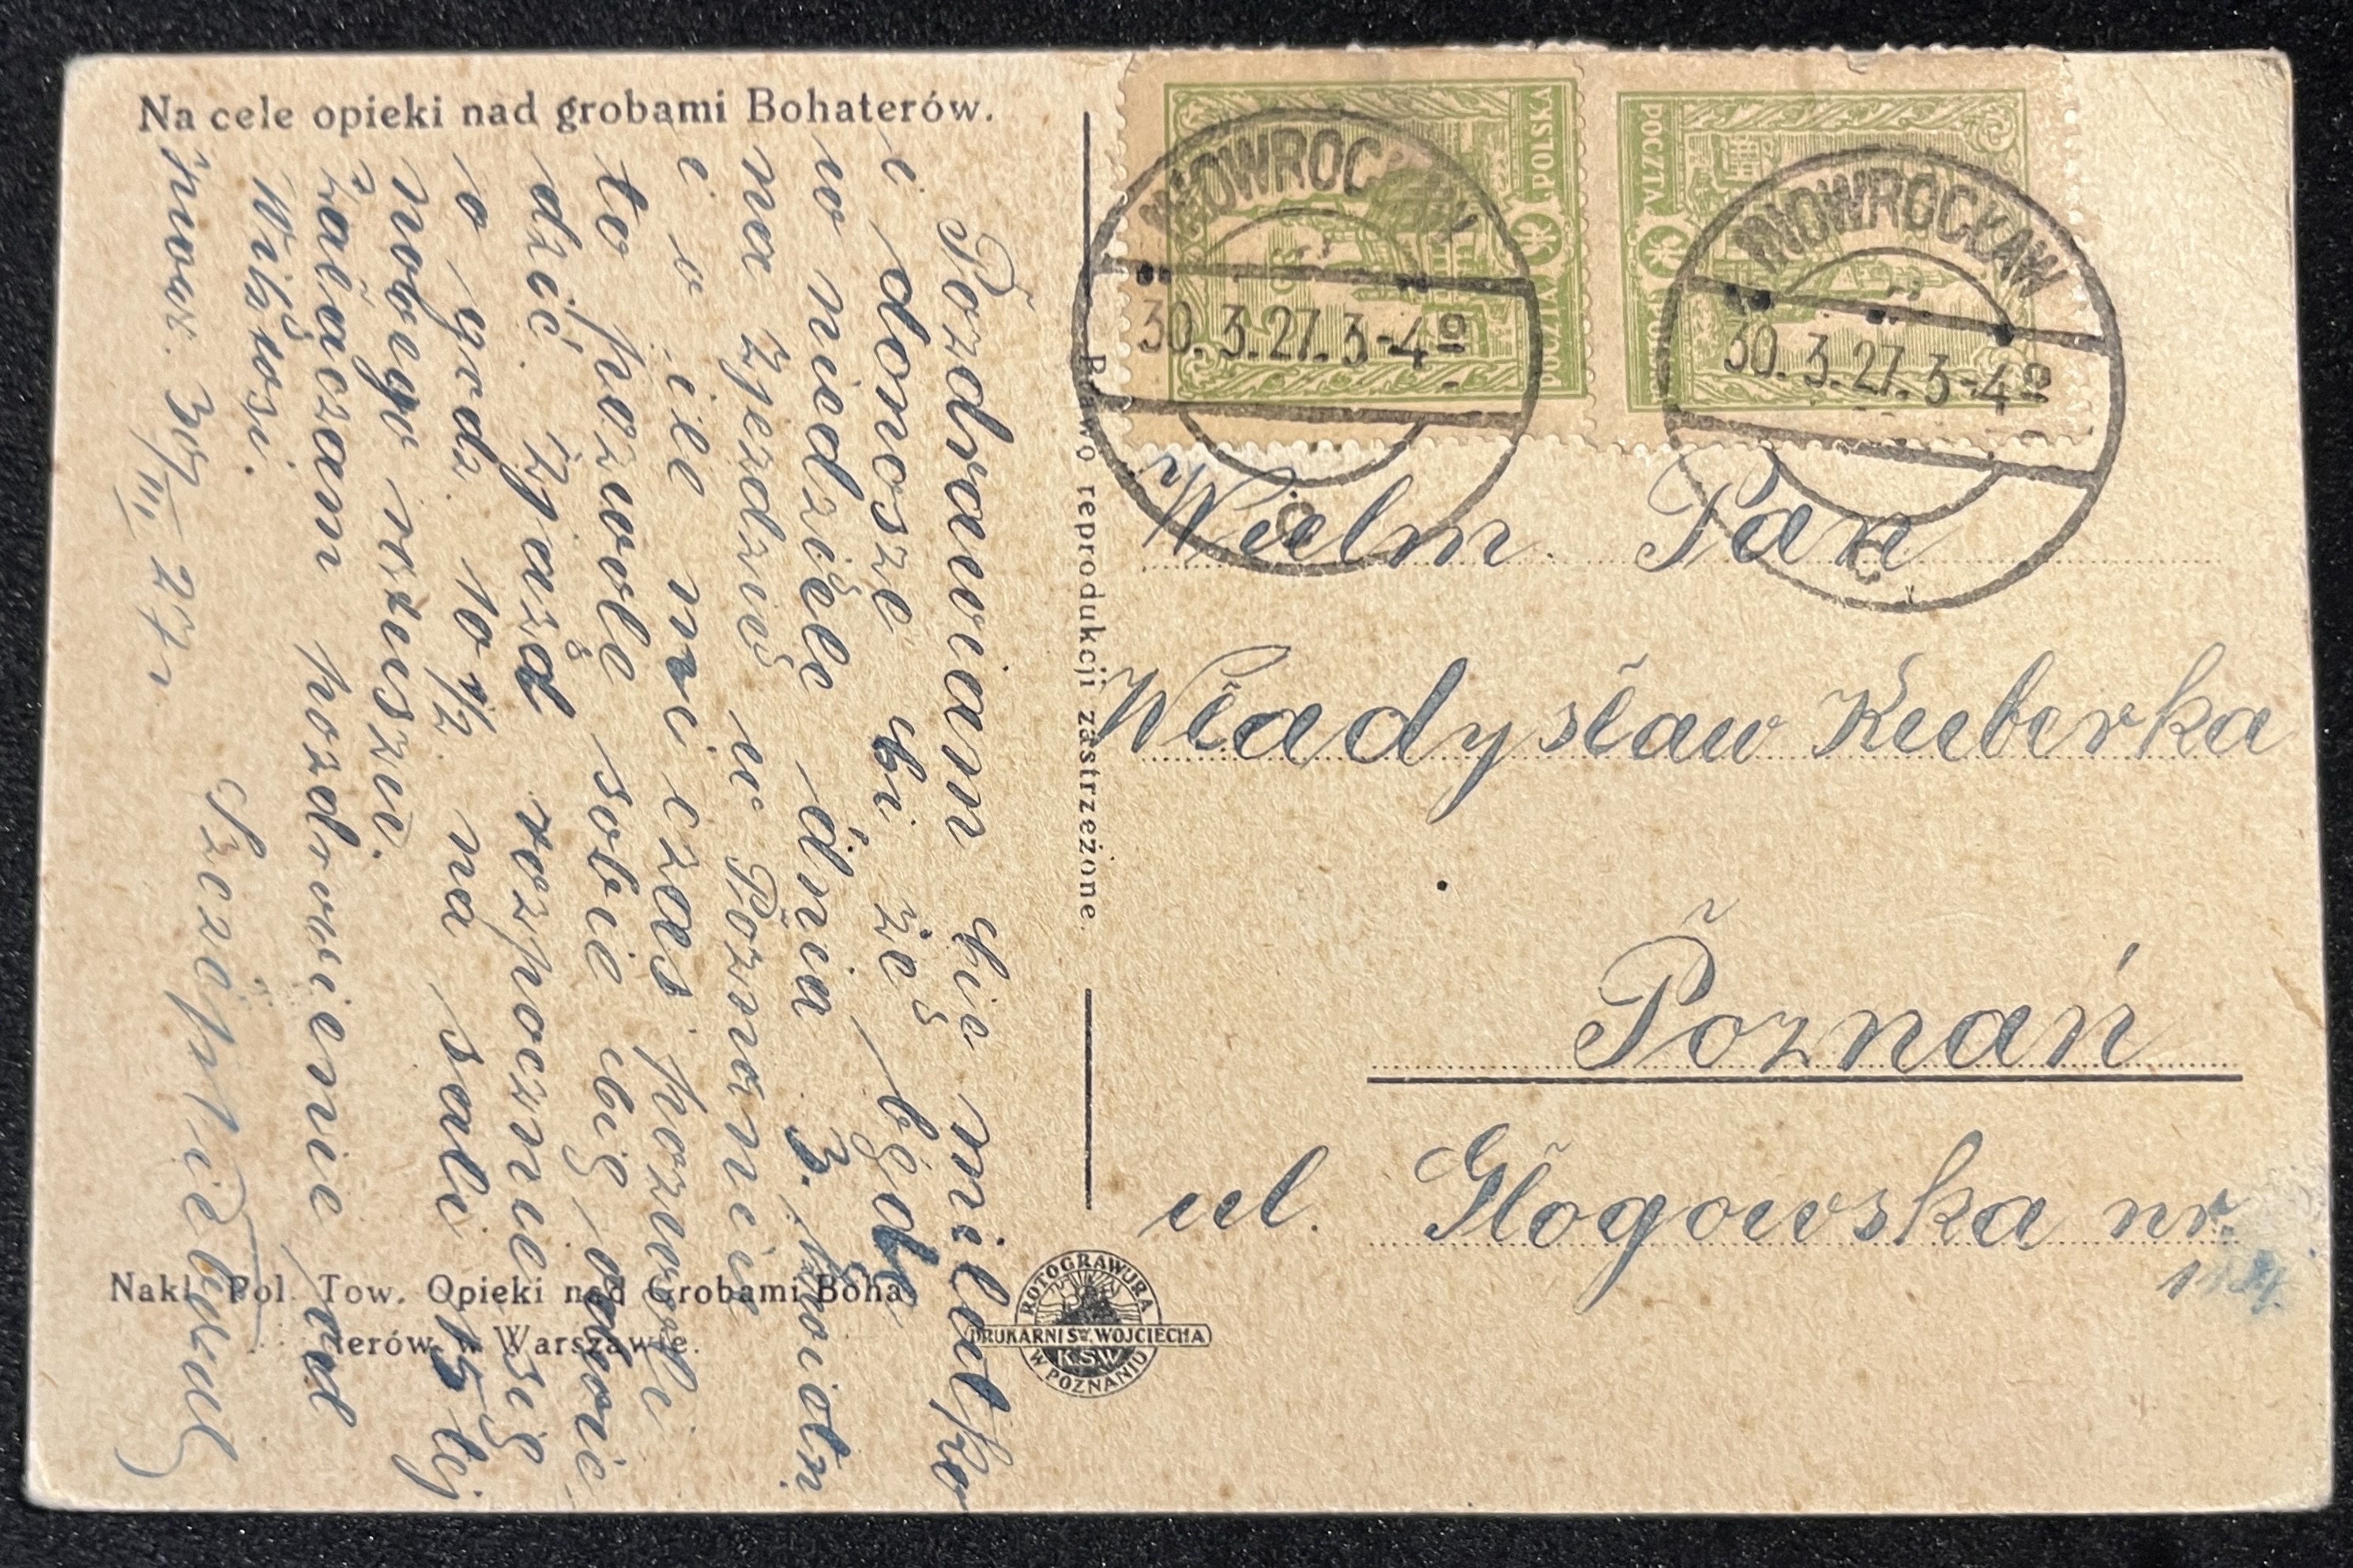 Na cele opieki nad grobami Bohaterów.
Pozdrawiam cię milutko
i donoszę ci żeś będę
w niedzielę dnia 3. kwietn.
na zjezdzie w Poznaniu
i o ile mi czas pozwoli
to pozwolę sobie cię odwie
dzić. Zjazd rozpocznie się
o godz. 10½ na sali 15 tej
nowego ratuszu.
Załączam pozdrowienie od
Inowr. 30/III 27 r
Nakł. Pol. Tow. Opieki nad Grobami Boha-
terów w Warszawie.
Prawo reprodukcji zastrzeżone.
ROTOGRAWURA
DRUKARNI Św. WOJCIECHA
KSW
W POZNANIU
POCZTA POLSKA
POCZTA POLSKA
INOWROCŁAW
30.3.27.3-4º
c
INOWROCŁAW
30.3.27.3-4º
c
Wielm. Pan
Władysław Kuberka
Poznań
ul. Głogowska nr.